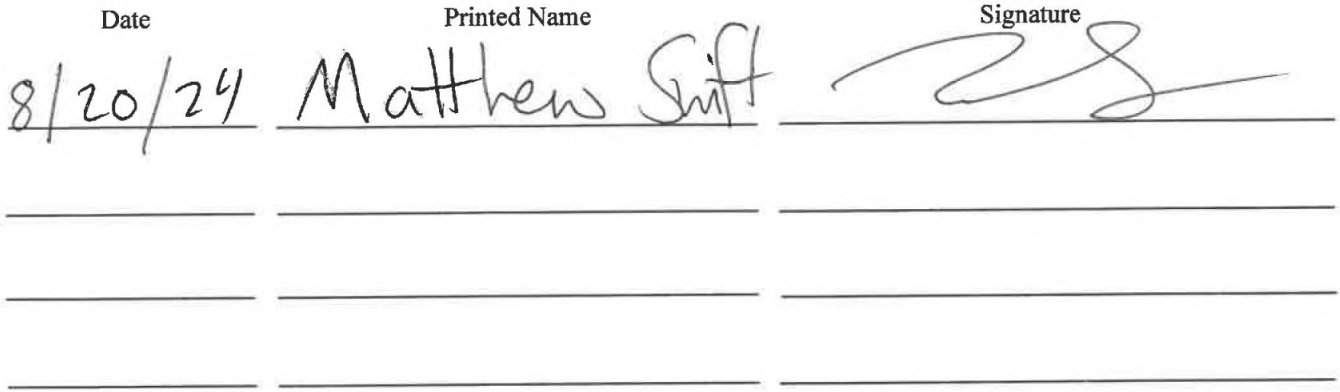 Date Printed Name Signature
8/20/24 Matthew Swift